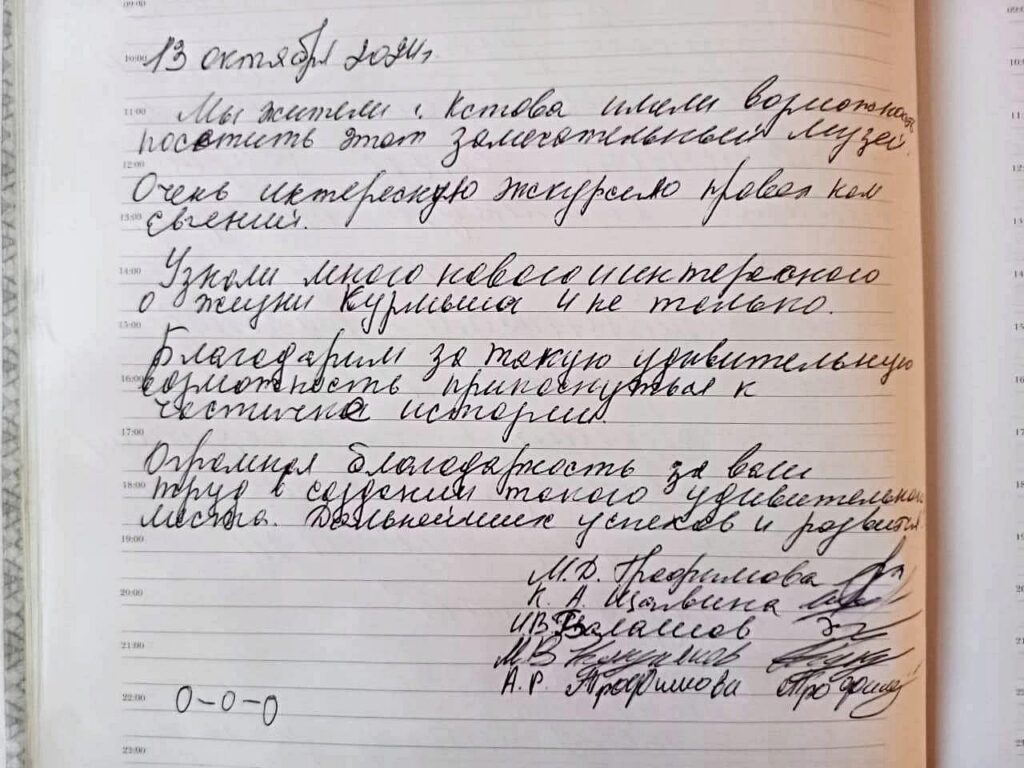 09:00
10:00 13 октября 2024г.
11:00 Мы жители г. Кстова имели возможность
посетить этот замечательный музей.
12:00
Очень интересную экскурсию провел нам
13:00 Евгений.
14:00 Узнали много нового и интересного
о жизни Курмыша и не только.
15:00
Благодарим за такую удивительную
16:00 возможность прикоснуться к
частичке истории.
17:00
Огромная благодарность за ваш
18:00 труд в создании такого удивительного
места. Дальнейших успехов и развития
19:00
М.Д. Трофимова
20:00 К. А. Щавина
И.В. Балашов
21:00 М.В.
А.Р. Трофимова
22:00 0-0-0
23:00